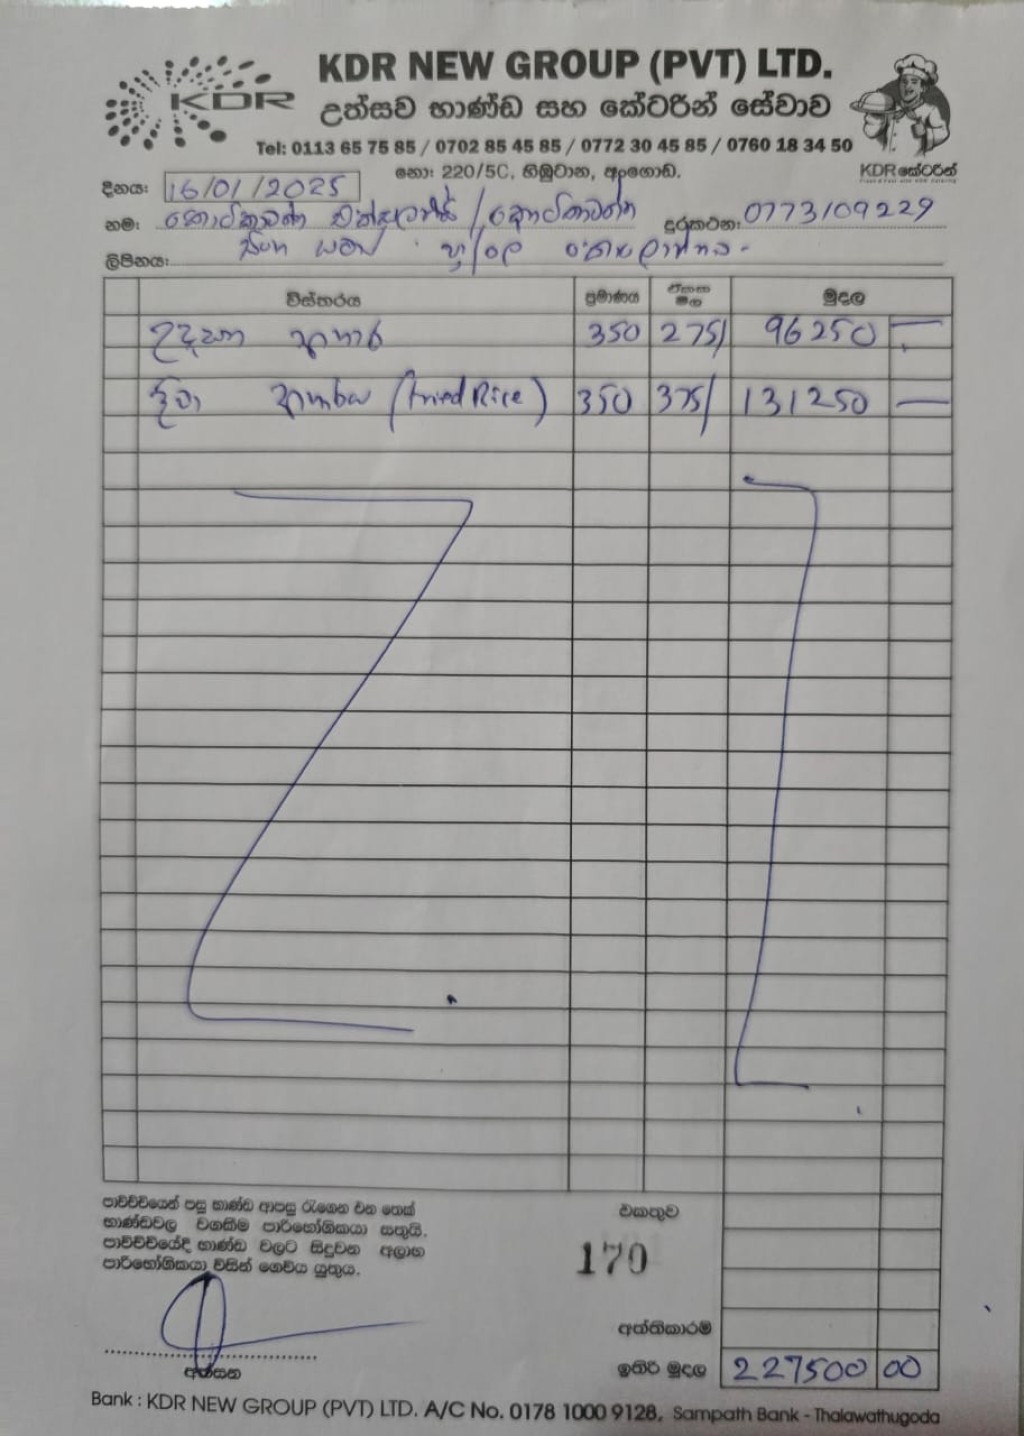 KDR NEW GROUP (PVT) LTD.
KDR
උත්සව භාණ්ඩ සහ කේටරින් සේවාව
Tel: 0113 65 75 85 / 0702 85 45 85 / 0772 30 45 85 / 0760 18 34 50
නො: 220/5C, හිඹුටාන, අංගොඩ.
KDR කේටරින්
දිනය: 16/01/2025
නම: දුරකථන: 0773109229
ලිපිනය:
විස්තරය ප්‍රමාණය ඒකක මිල මුදල
උදෑසන ආහාර 350 275/ 96250 -
දිවා ආහාරය (Fried Rice) 350 375/ 131250 —
පාවිච්චියෙන් පසු භාණ්ඩ ආපසු රැගෙන එන තෙක්
භාණ්ඩවල වගකීම පාරිභෝගිකයා සතුයි.
පාවිච්චියේදී භාණ්ඩ වලට සිදුවන අලාභ
පාරිභෝගිකයා විසින් ගෙවිය යුතුය.
එකතුව
170
අත්තිකාරම්
අත්සන
ඉතිරි මුදල 227500 00
Bank : KDR NEW GROUP (PVT) LTD. A/C No. 0178 1000 9128, Sampath Bank - Thalawathugoda